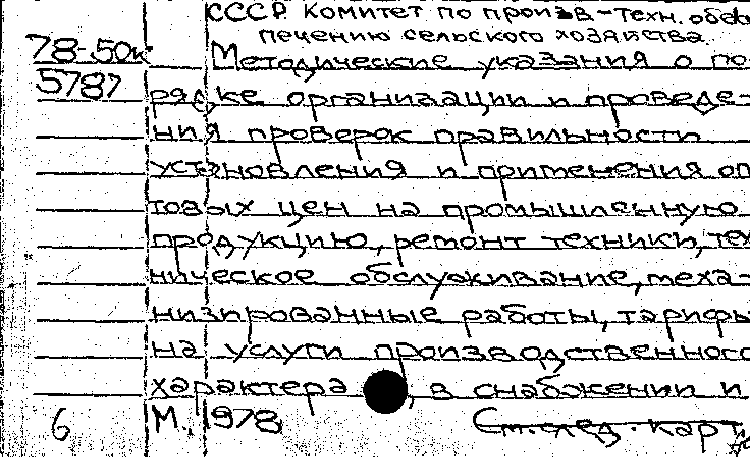 СССР. Комитет по произв-техн. обес
печению сельского хозяйства.
78-50к
Методические указания о по-
5787
рядке организации и проведе-
ния проверок правильности
установления и применения оп
товых цен на промышленную
продукцию, ремонт техники, тех
ническое обслуживание, меха-
низированные работы, тарифы
на услуги производственного
характера, в снабжении и
6 М., 1978 См. след. карт